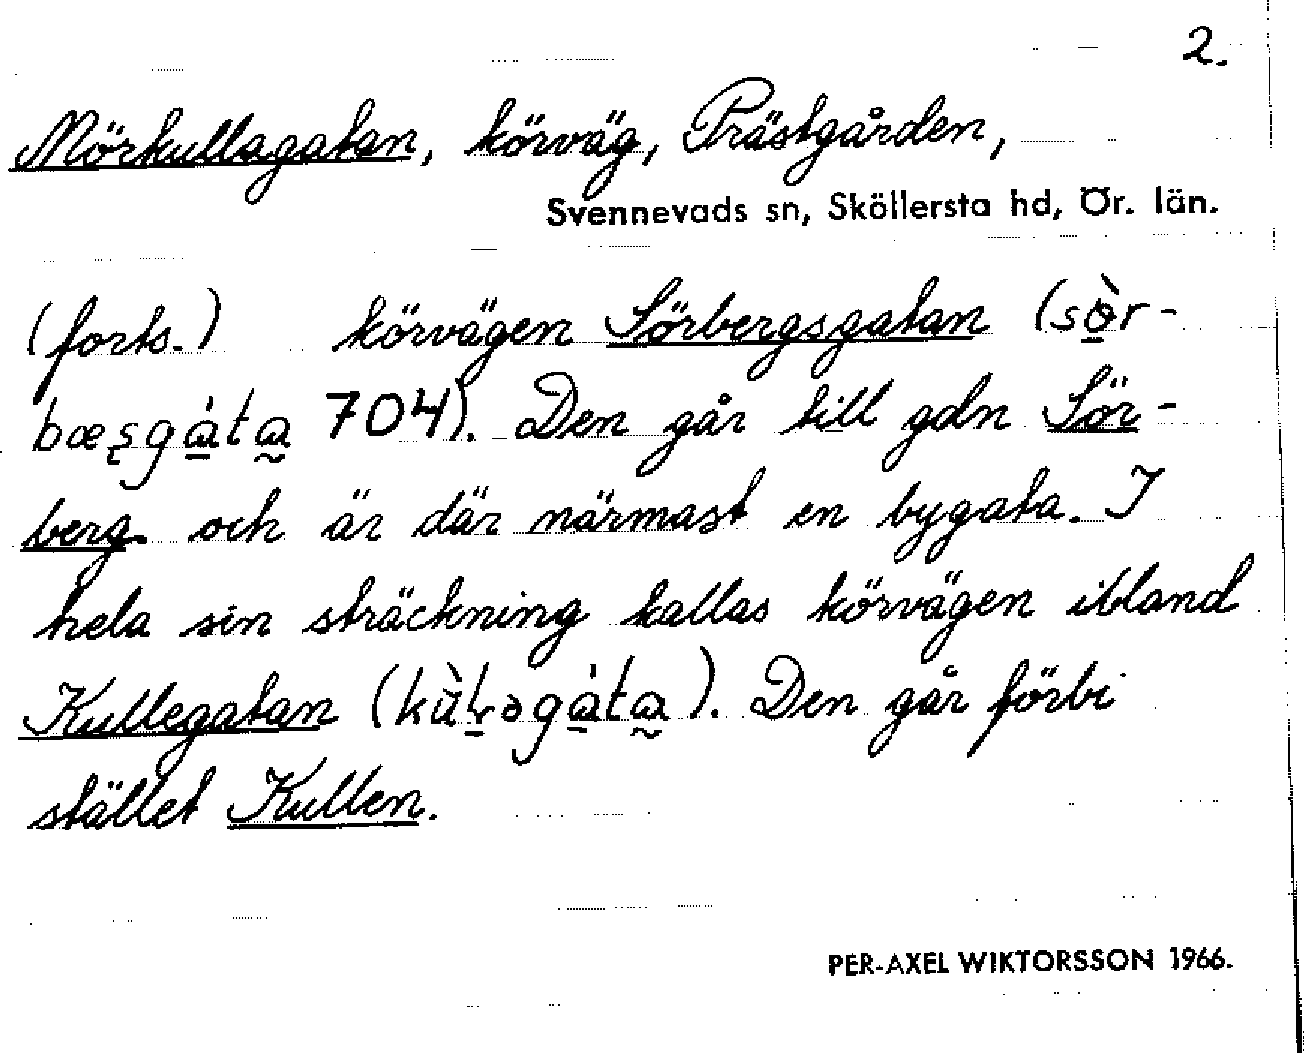 2.
Mörkullagatan, körväg, Prästgården,
Svennevads sn, Sköllersta hd, Ör. län.
(forts.) körvägen Sörbergsgatan (sòr-
bæʂgàta 704). Den går till gdn Sör-
berg och är där närmast en bygata. I
hela sin sträckning kallas körvägen ibland
Kullegatan (kùləgàta). Den går förbi
stället Kullen.
PER-AXEL WIKTORSSON 1966.